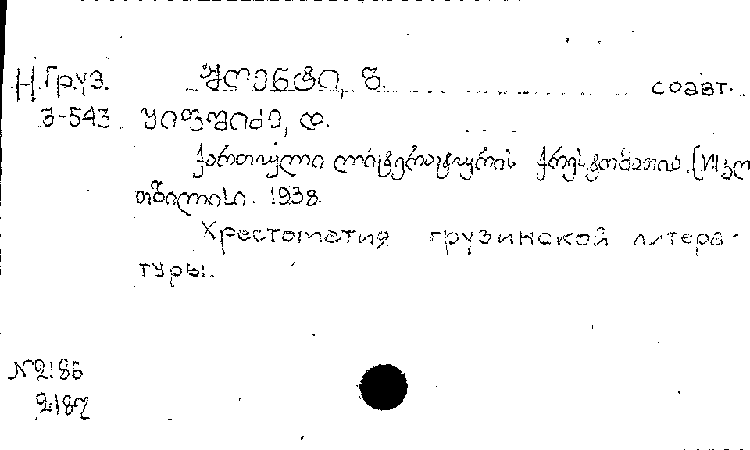 Н.Груз. ჟღენტი, ბ. соавт.
3-543 ყიფშიძე, დ.
ქართული ლიტერატურის ქრესტომათია.
თბილისი. 1938.
Хрестоматия грузинской литера-
туры.
N 2186
2187